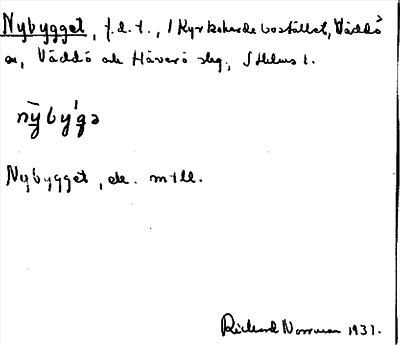 Nybygget, f.d.t., 1 Kyrkoherdebostället, Väddö
sn, Väddö och Häverö skg, Sthlms l.
nỳbýgə
Nybygget, ek. mtll.
Rickard Norrman 1937.